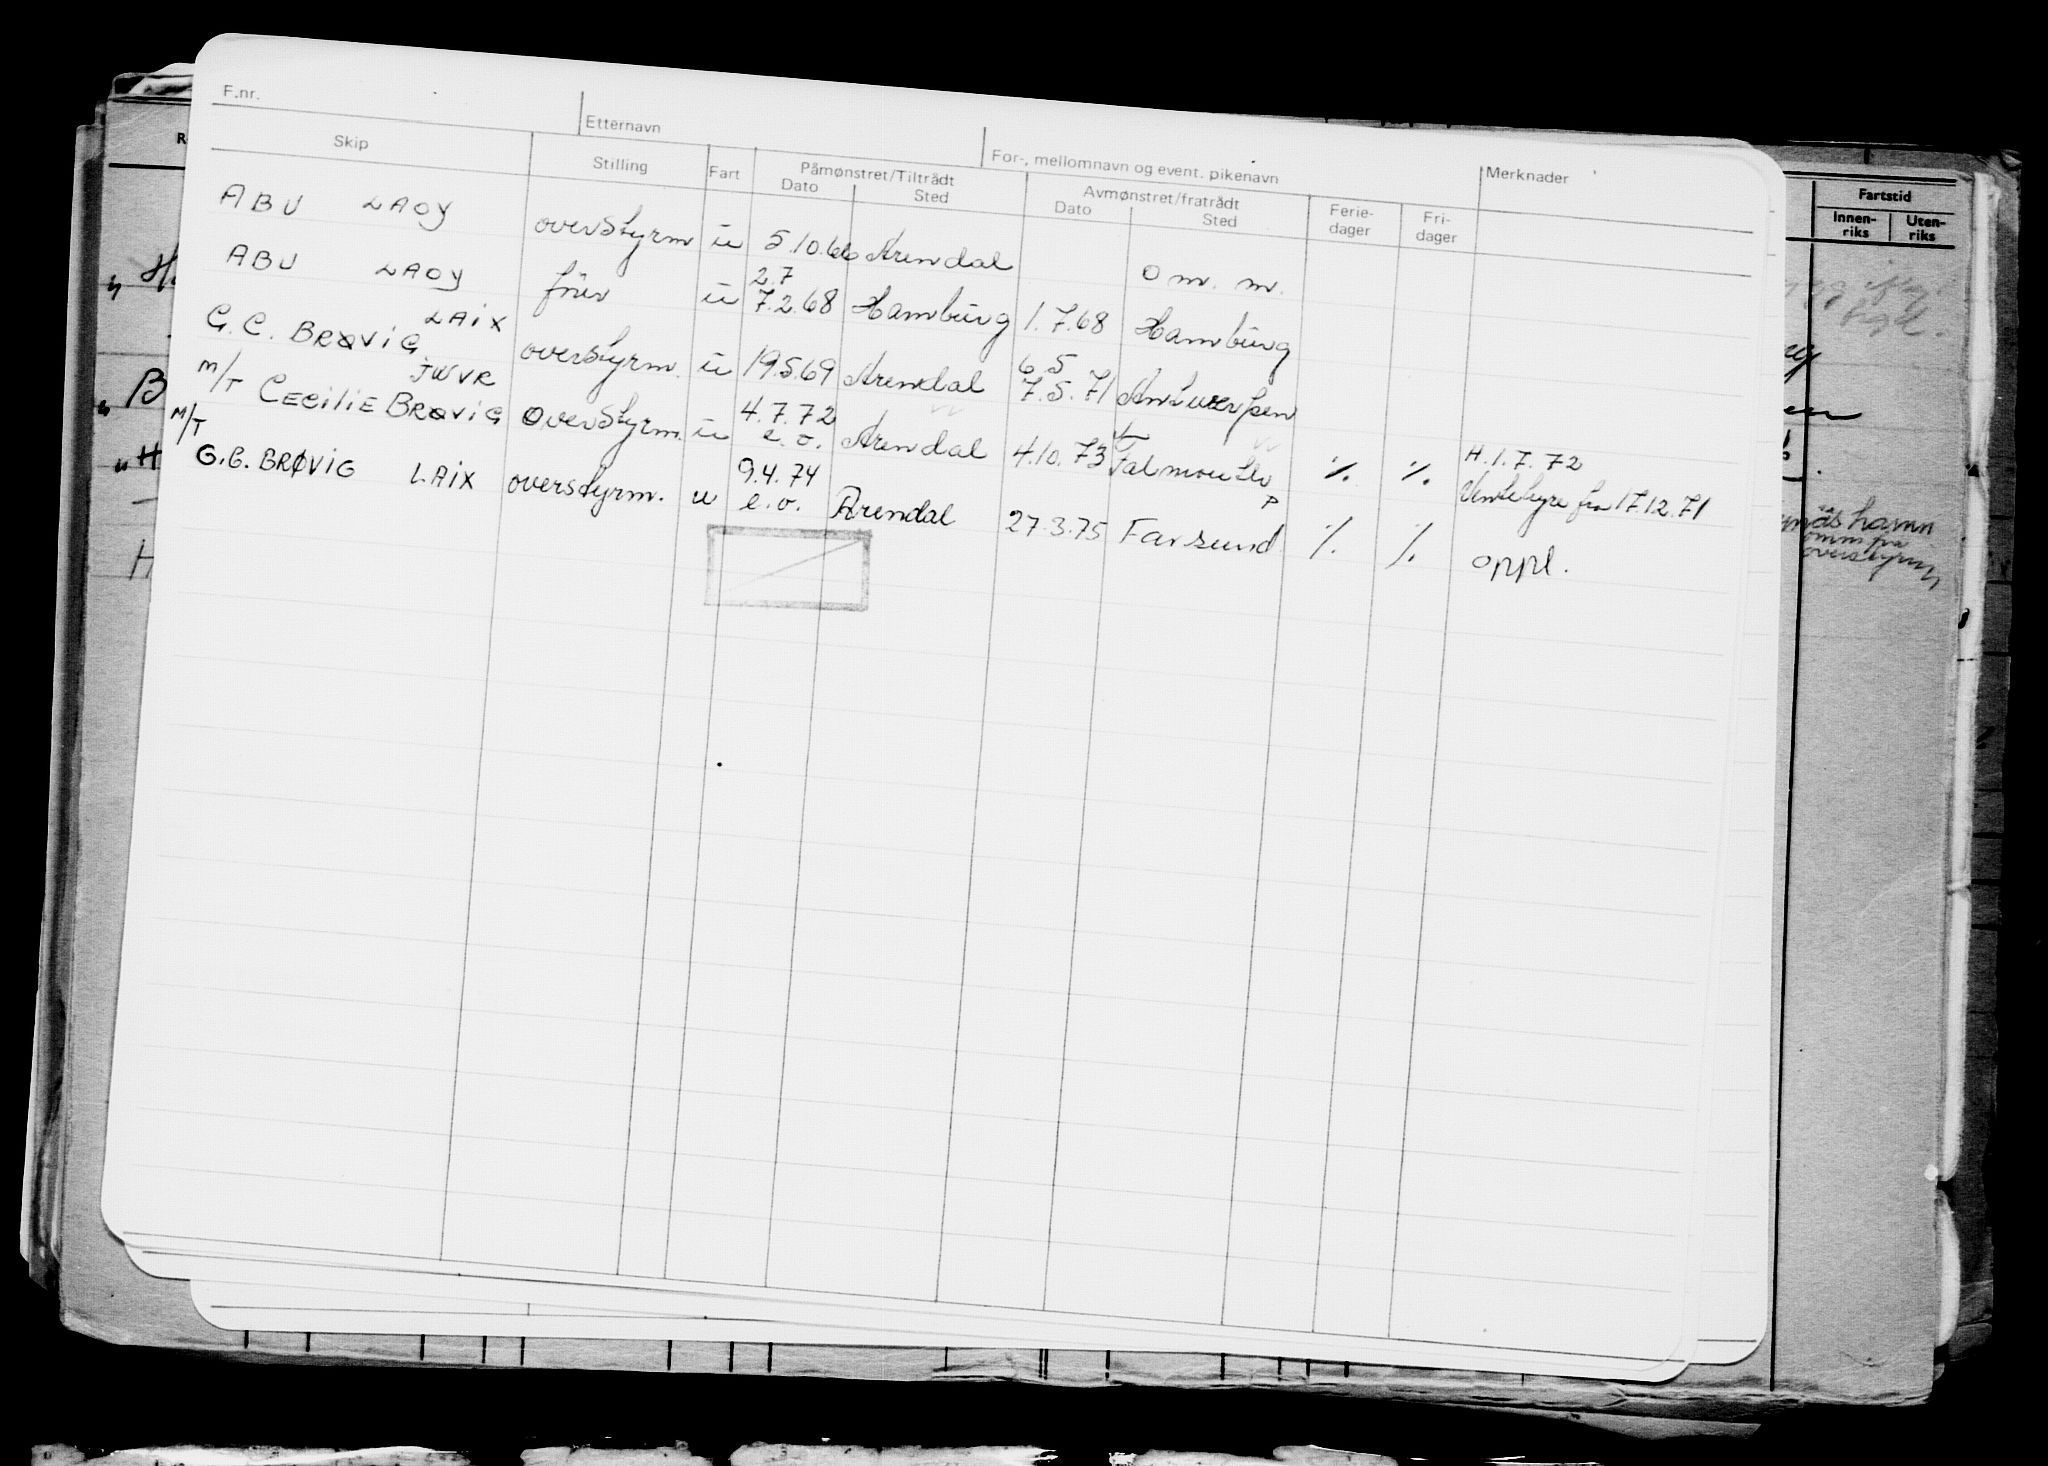 F.nr.
Etternavn
For-, mellomnavn og event. pikenavn
Skip
Stilling
Fart
Påmønstret/Tiltrådt
Dato
Sted
Avmønstret/fratrådt
Dato
Sted
Ferie-
dager
Fri-
dager
Merknader
Fartstid
Innen-
riks
Uten-
riks
ABU LAOY overstyrm u 5.10.66 Arendal o m. m.
2.7
ABU LAOY fører u 7.2.68 Hamburg 1.7.68 Hamburg
6.5
G.C. BRØVIG LAIX overstyrm. u 19.5.69 Arendal 7.5.71 Antwerpen
4.7.72
M/T CECILIE BRØVIG JWVR overstyrm. u e.o. Arendal 4.10.73 Falmouth % % H.1.7.72
Ventehyre fra 17.12.71
9.4.74
M/T G.C. BRØVIG LAIX overstyrm. u e.o. Arendal 27.3.75 Farsund % % oppl.
havn
omm fra
overstyrm